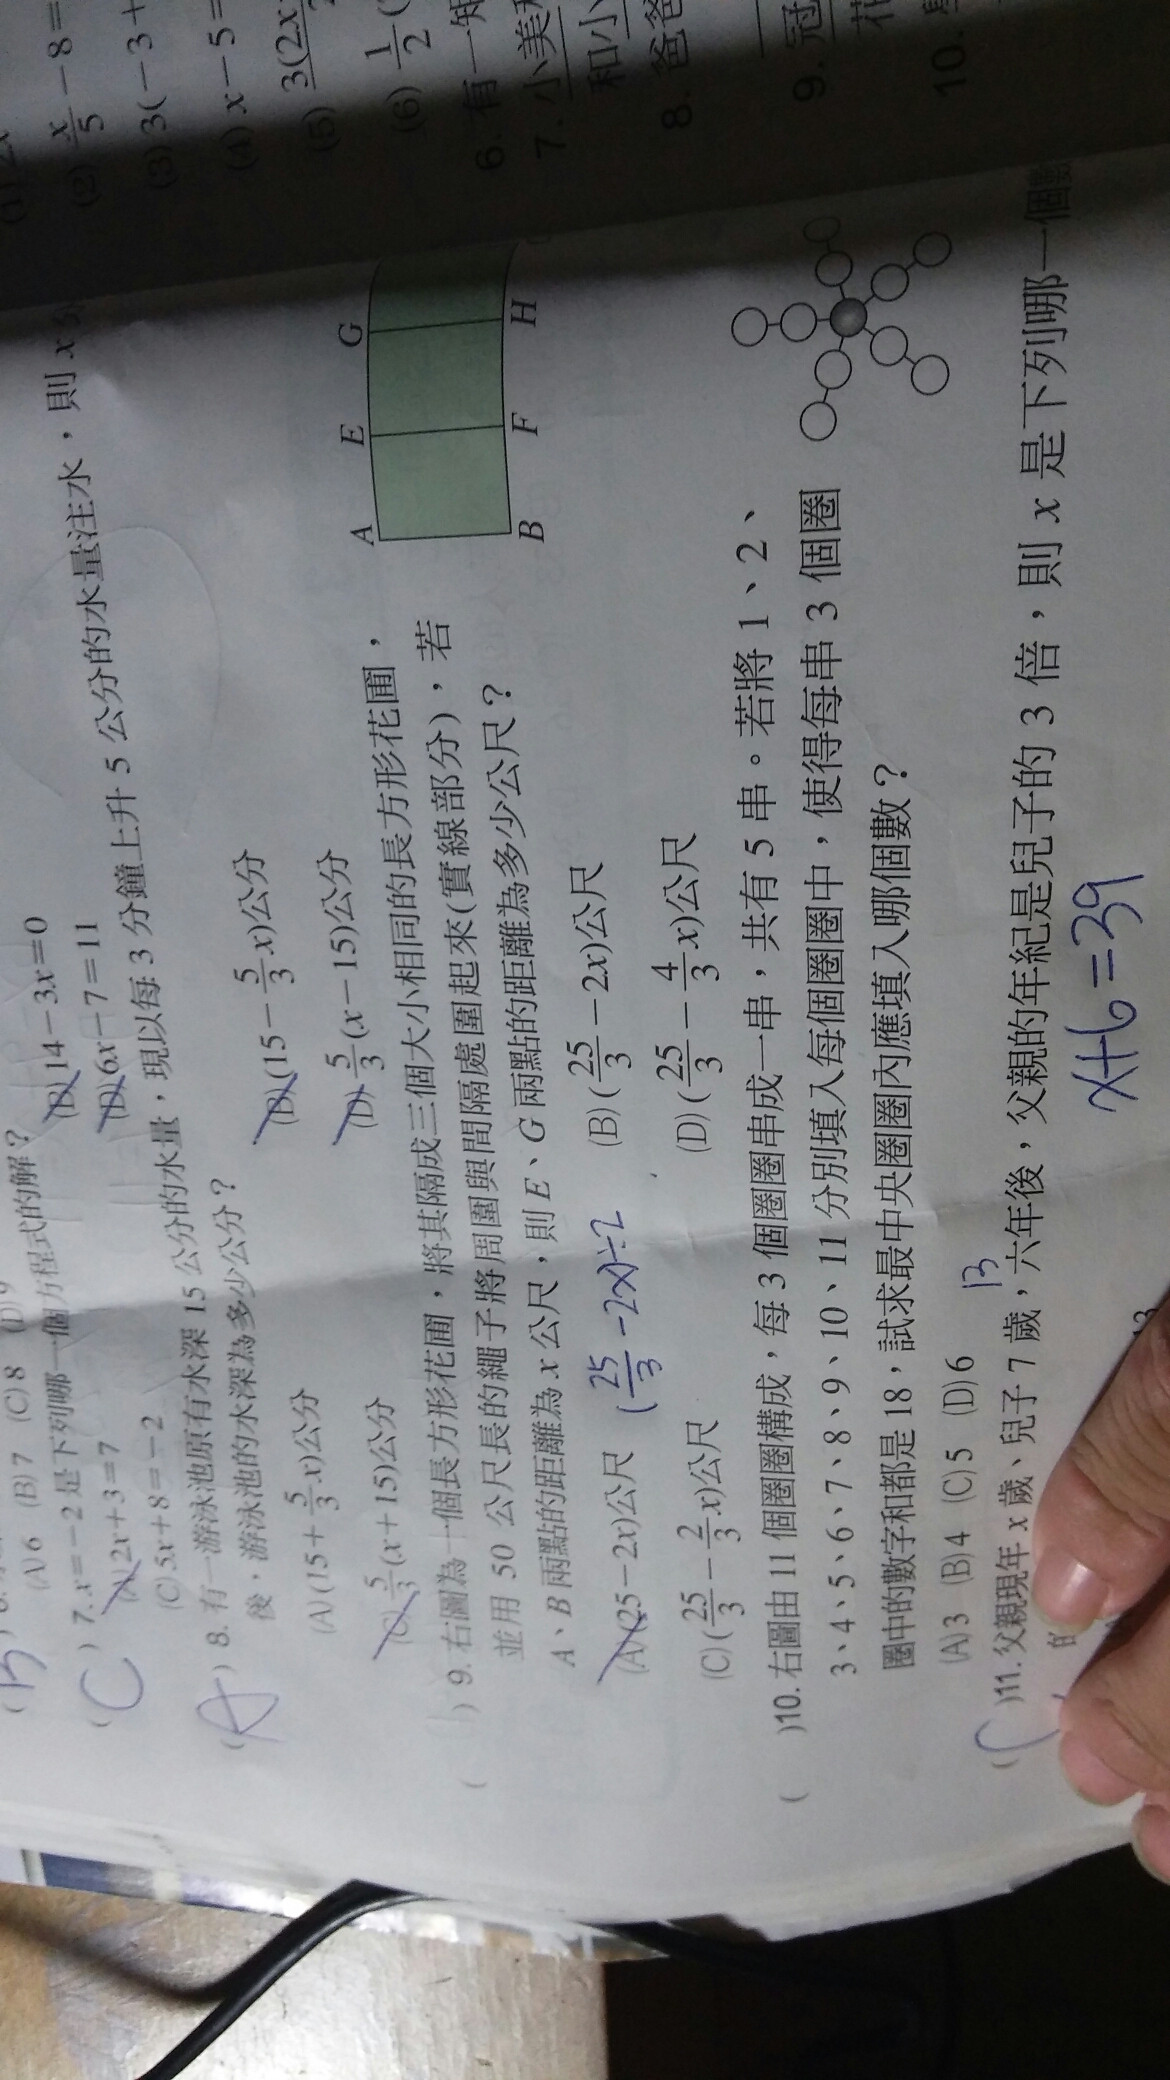 (A) 6 (B) 7 (C) 8 (D) 9
(C) 7. x=－2 是下列哪一個方程式的解？
(A) 2x＋3=7 (B) 14－3x=0
(C) 5x＋8=－2 (D) 6x－7=11
(A) 8. 有一游泳池原有水深 15 公分的水量，現以每 3 分鐘上升 5 公分的水量注水，則 x
後，游泳池的水深為多少公分？
(A) (15＋5/3 x)公分 (B) (15－5/3 x)公分
(C) 5/3 (x＋15)公分 (D) 5/3 (x－15)公分
( ) 9. 右圖為一個長方形花圃，將其隔成三個大小相同的長方形花圃，
並用 50 公尺長的繩子將周圍與間隔處圍起來(實線部分)，若
A、B 兩點的距離為 x 公尺，則 E、G 兩點的距離為多少公尺？
(A) (25－2x)公尺 (25/3 －2x)÷2 (B) (25/3 －2x)公尺
(C) (25/3 － 2/3 x)公尺 (D) (25/3 － 4/3 x)公尺
A E G
B F H
( )10. 右圖由 11 個圈圈構成，每 3 個圈圈串成一串，共有 5 串。若將 1、2、
3、4、5、6、7、8、9、10、11 分別填入每個圈圈中，使得每串 3 個圈
圈中的數字和都是 18，試求最中央圈圈內應填入哪個數？
(A) 3 (B) 4 (C) 5 (D) 6
13
( )11. 父親現年 x 歲、兒子 7 歲，六年後，父親的年紀是兒子的 3 倍，則 x 是下列哪一個
的
x+6=39
13
(2) x/5 －8=
(3) 3(－3＋
(4) x－5=
(5) 3(2x
(6) 1/2 (
6. 有一
7. 小美
和小
8. 爸爸
9. 冠
花
10.